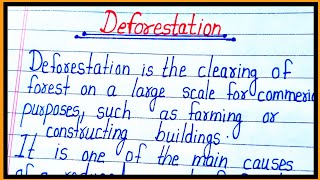 Deforestation
Deforestation is the clearing of
forest on a large scale for commerc
purposes, such as farming or
constructing buildings.
It is one of the main causes